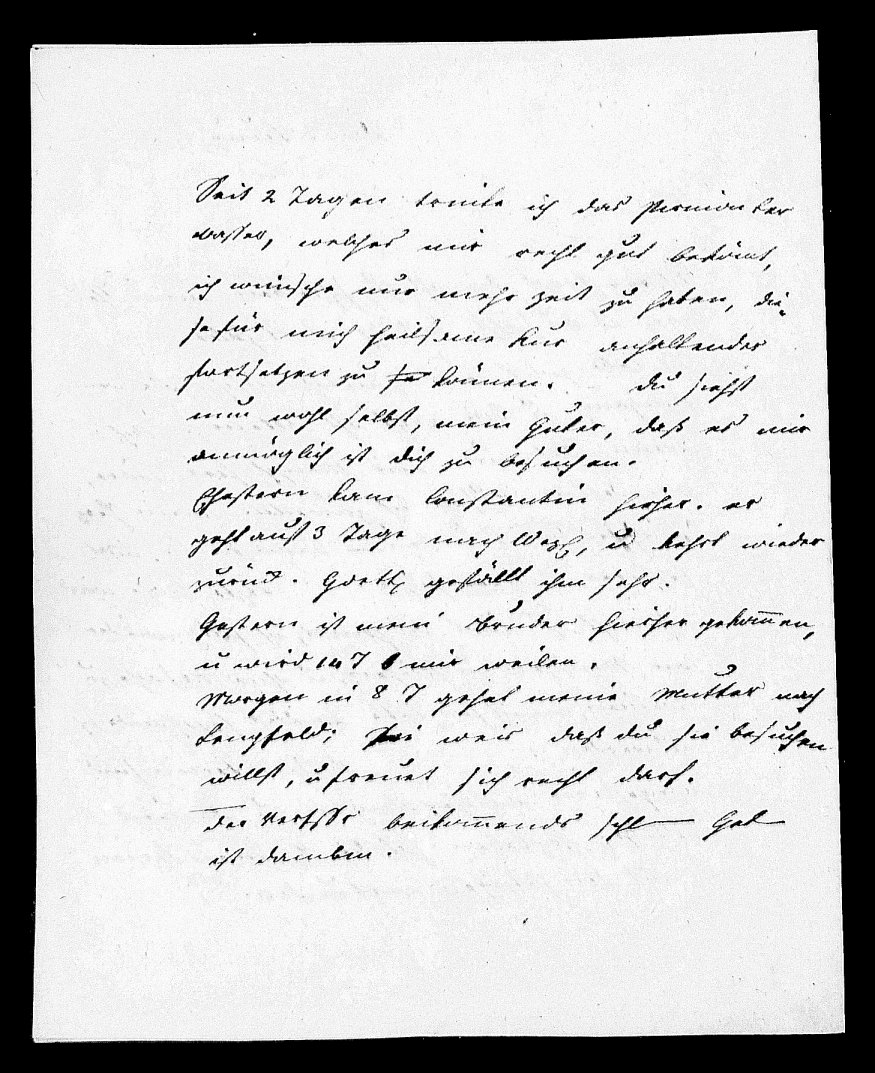 Seit 2 Tagen trinke ich das Pirmonter
Wasser, welches mir recht gut bekömt,
ich wünsche nur mehr zeit zu haben, die-
se für mich heilsame Kur anhaltender
fortsetzen zu können. du siehst
nun wohl selbst, mein Guter, daß es mir
unmöglich ist dich zu besuchen.
Ehestern kam Constantin hieher. er
geht auf 3 Tage nach Wezl, u kehrt wieder
zurück. Goett gefällt ihm sehr.
Gestern ist mein Bruder hierher gekom̅en,
u wird 14 T mir weilen.
Morgen in 8 T gehet meine Mutter nach
Lengfeld; Sie weis daß du sie besuchen
willst, u freuet sich recht darf.
Der beikom̅ends
ist